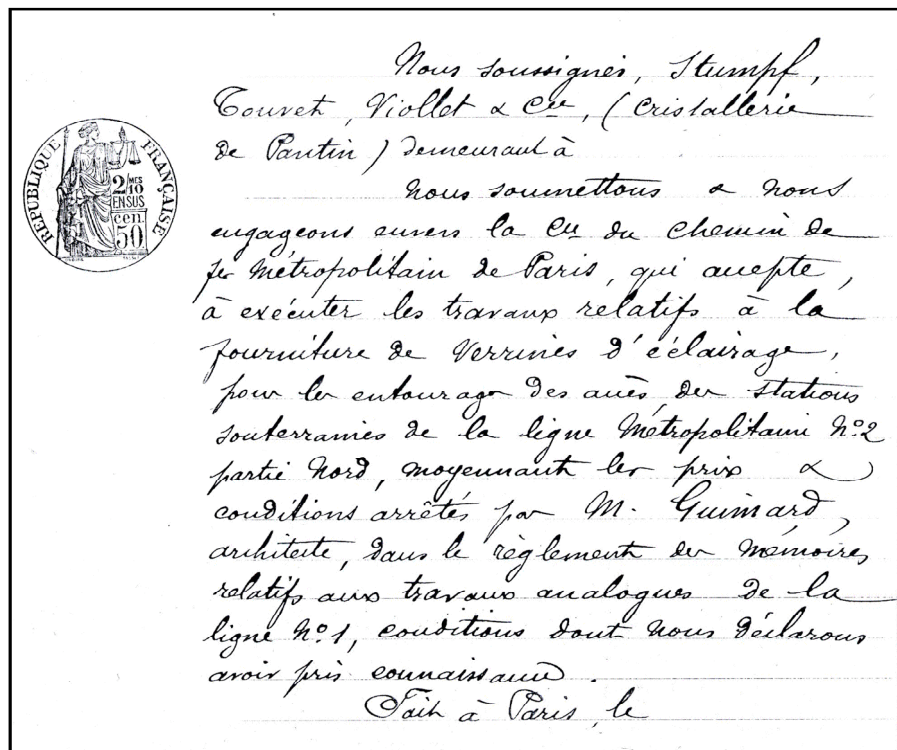 Nous soussignés, Stumpf,
Touvet, Viollet & Cie, (Cristallerie
de Pantin) demeurant à
Nous soumettons & nous
engageons envers la Cie du Chemin de
fer Métropolitain de Paris, qui accepte,
à exécuter les travaux relatifs à la
fourniture de Verrines d'éclairage,
pour les entourages des accès des stations
souterraines de la ligne Métropolitaine Nº2
partie Nord, moyennant les prix &
conditions arrêtés par M. Guimard,
architecte, dans le règlement des mémoires
relatifs aux travaux analogues de la
ligne Nº1, conditions dont nous déclarons
avoir pris connaissance.
Fait à Paris, le
RÉPUBLIQUE FRANÇAISE
2/MES
10
EN SUS
cen.
50